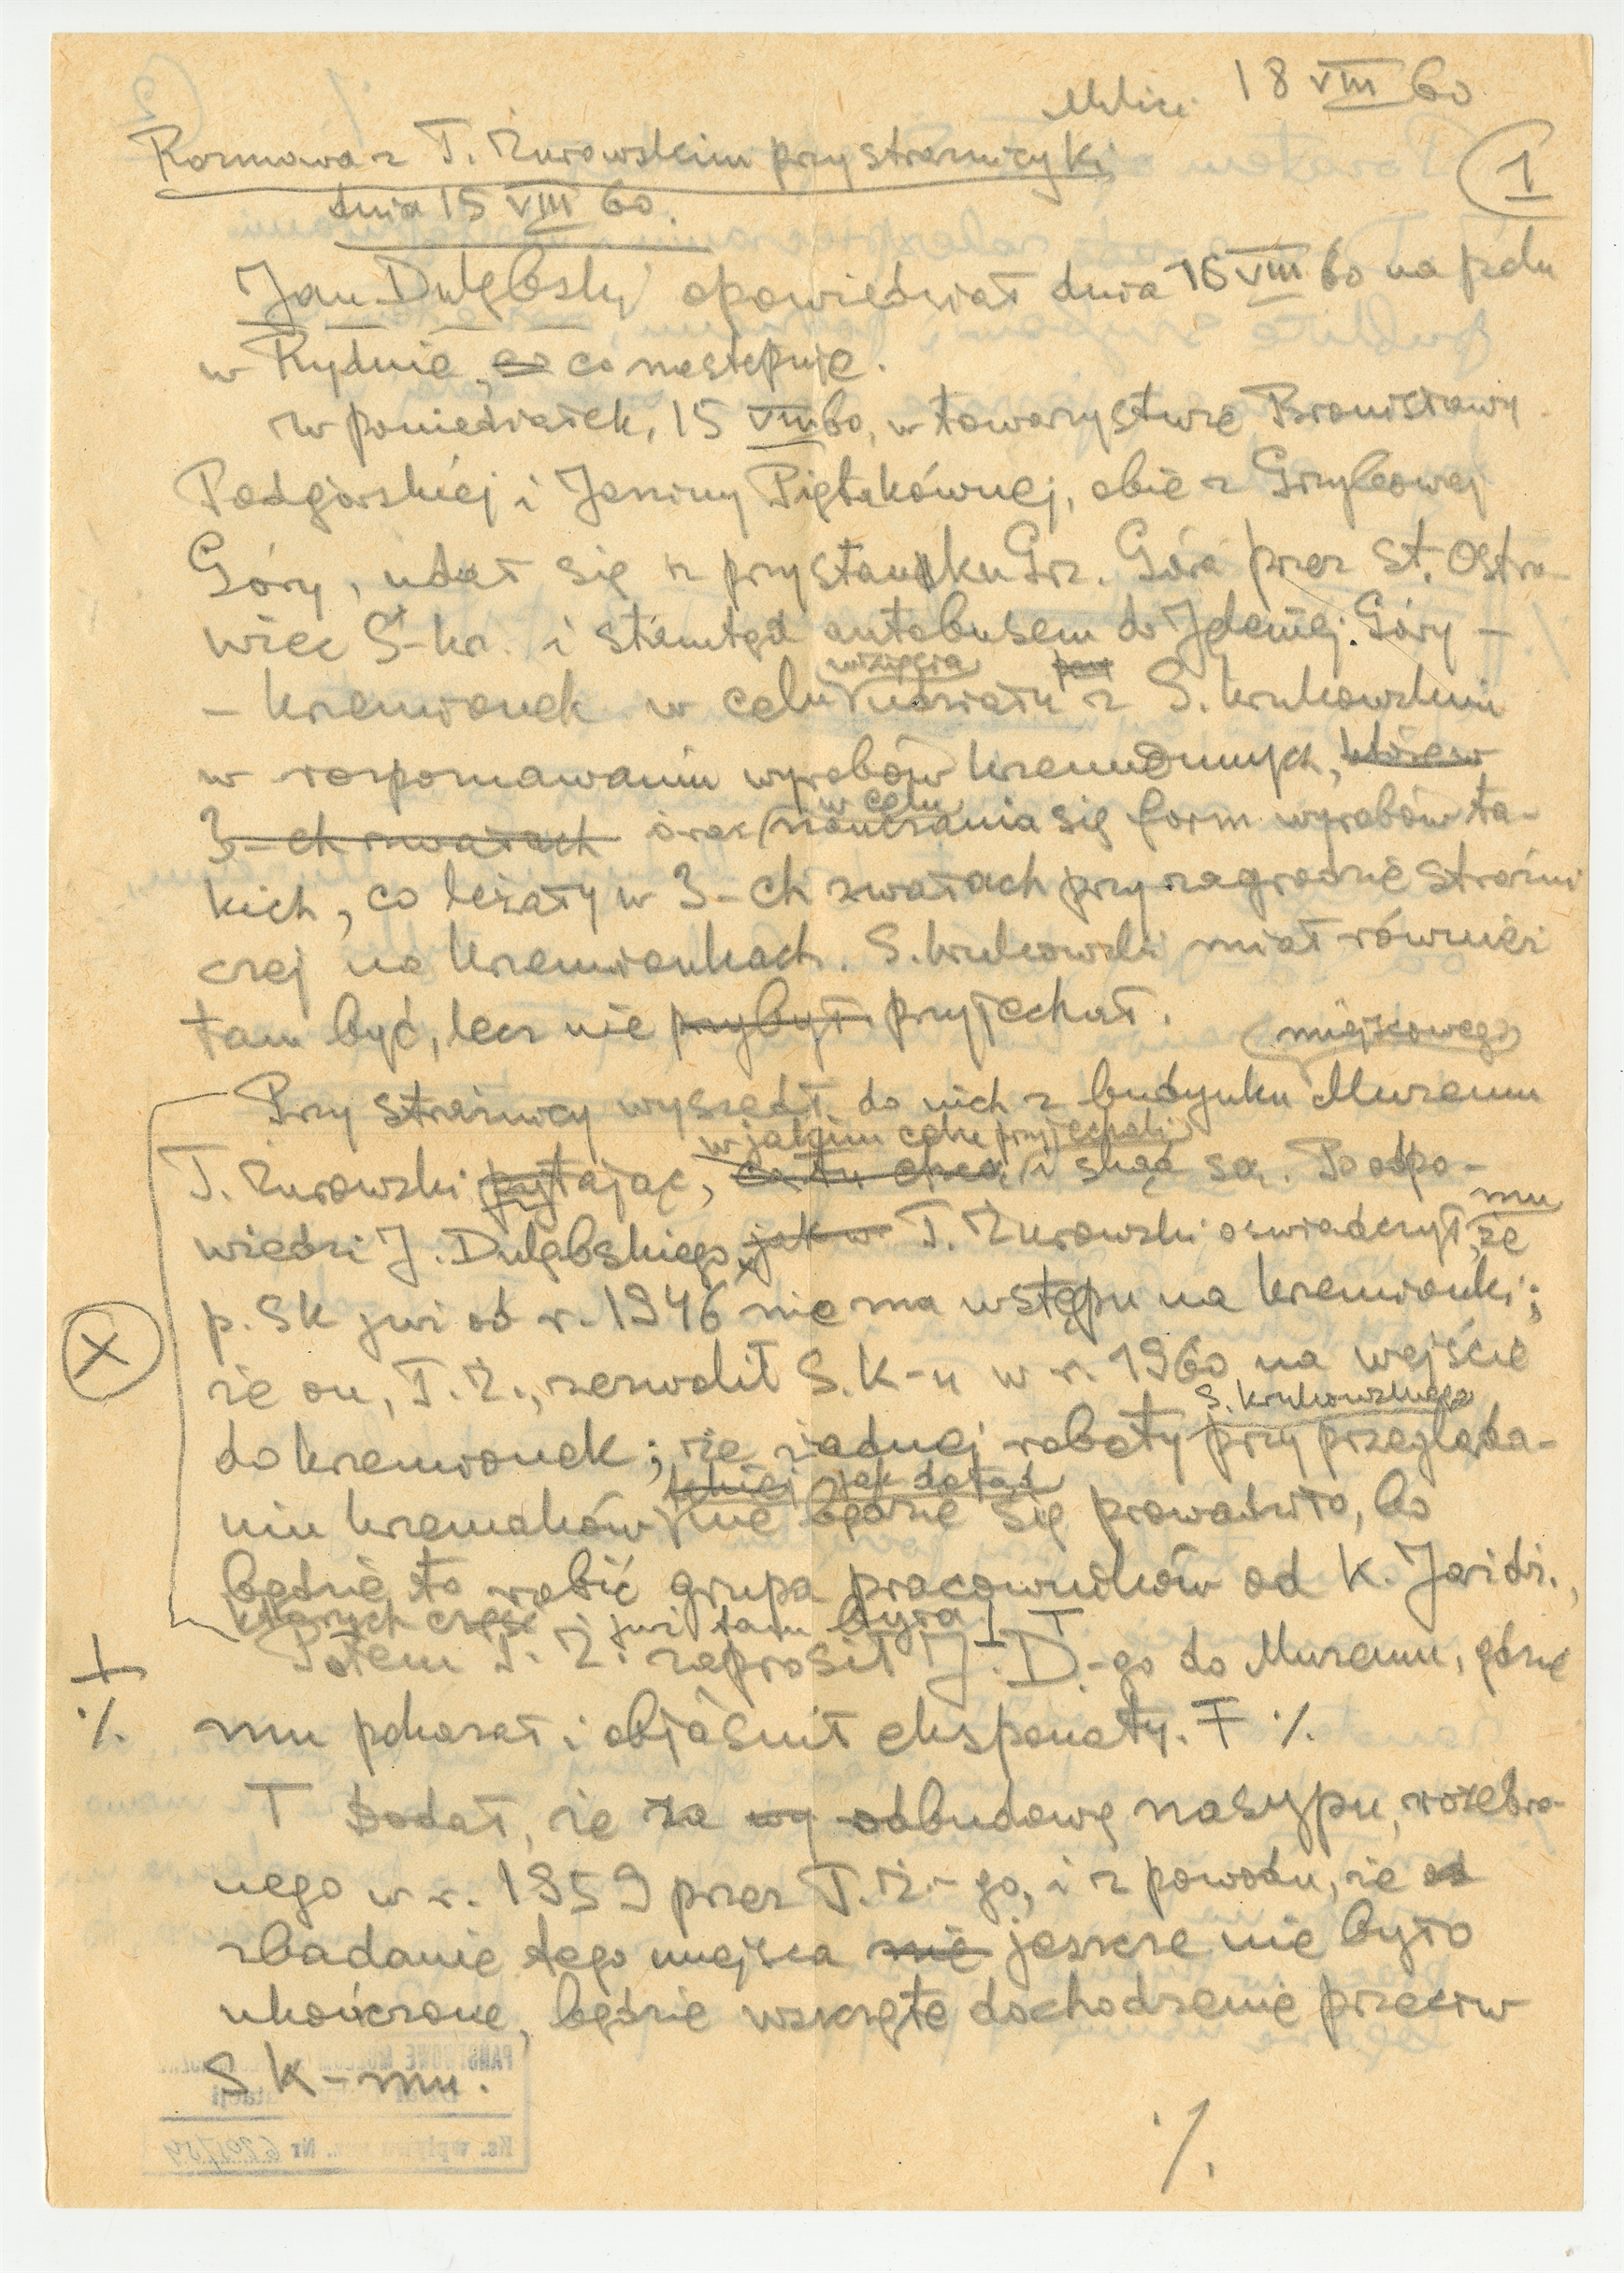 18 VIII 60
Rozmowa z T. Żurowskim przy strażnicy Kj
1
dnia 15 VIII 60.
Jan Dulębski opowiedział dnia 16 VIII 60 na polu
w Rydnie, co co następuje.
w poniedziałek, 15 VIII 60, w towarzystwie Bronisławy
Podgórskiej i Janiny Piętakównej, obie z Grzybowej
Góry, udał się z przystanku Grz. Góra przez st. Ostro-
wiec Ś-kr. i stamtąd autobusem do Jeleniej Góry –
wzięcia
– krzemionek w celu udziału z S. Krukowskim
w rozpoznawaniu wyrobów krzemiennych,
w celu
3-ch zwałach oraz nauczania się form wyrobów ta-
kich, co leżały w 3-ch zwałach przy zagrodzie strażni
czej na krzemionkach. S. Krukowski miał również
tam być, lecz nie przybył przyjechał.
miejscowego
Przy strażnicy wyszedł do nich z budynku Muzeum
w jakim celu przyjechali
T. Żurowski pytając, co tu chcą i skąd są. Po odpo-
mu
wiedzi J. Dulębskiego, jak w T. Żurowski oświadczył, że
p. SK już od r. 1946 nie ma wstępu na krzemionki;
X
że on, T. Ż., zezwolił S. K-u w r. 1960 na wejście
S. Krukowskiego
do krzemionek; że żadnej roboty przy przegląda-
jak dotąd
niu krzemaków nie będzie się prowadziło, bo
będzie to robić grupa pracowników od K. Jażdż.,
których część już tam była ⊥ T
+
Potem T. Ż. zaprosił J. D.-go do Muzeum, gdzie
·/.
mu pokazał i objaśnił eksponaty. Ŧ ·/.
T Dodał, że za wy odbudowę nasypu, rozebra-
nego w r. 1959 przez T. Ż.-go, i z powodu, że od
zbadanie tego miejsca nie jeszcze nie było
ukończone, będzie wszczęte dochodzenie przeciw
SK-mu.
·/.